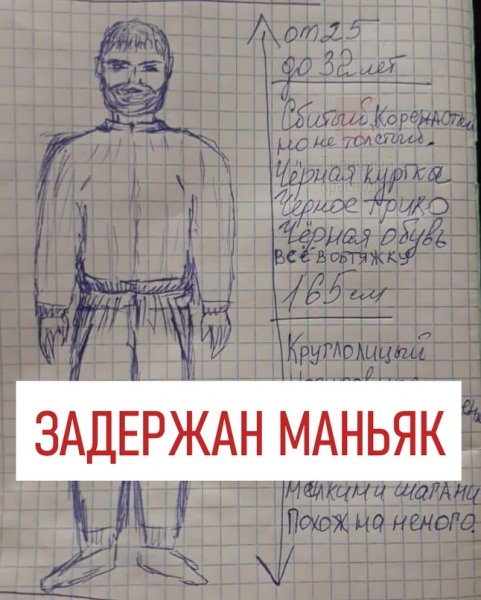 от 25
до 32 лет
Сбитый, Коренастый
но не толстый.
Чёрная куртка
Чёрное трико
Чёрная обувь
всё в обтяжку
165 см
Круглолицый
ЗАДЕРЖАН МАНЬЯК
мелкими шагами
Похож на немого.